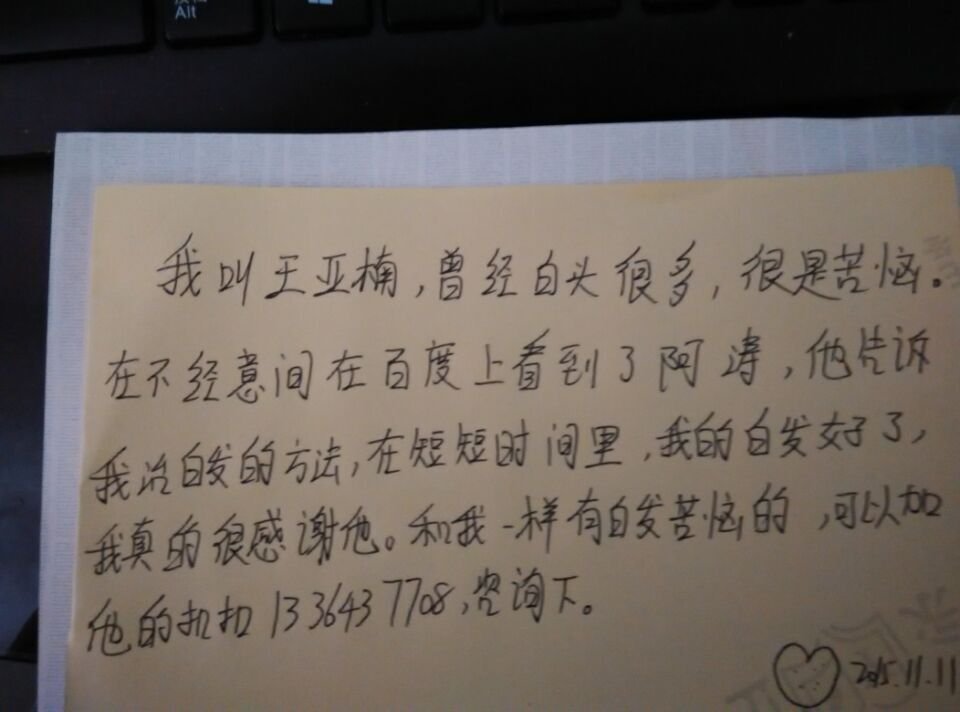 Alt
我叫王亚楠,曾经白头很多,很是苦恼。
在不经意间在百度上看到了阿涛,他告诉
我治白发的方法,在短短时间里,我的白发好了,
我真的很感谢他。和我一样有白发苦恼的,可以加
他的扣扣 1336437708,咨询下。
2015.11.11